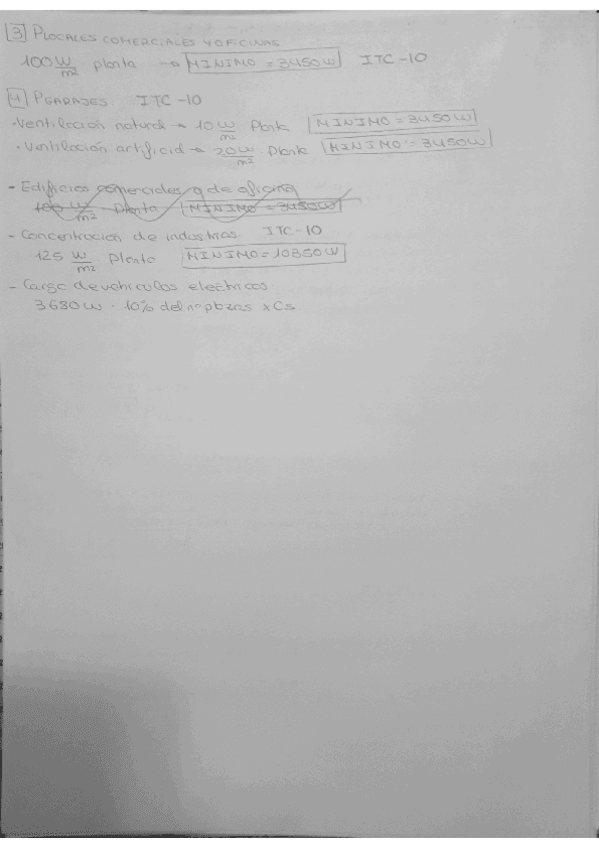 3 PLOCALES COMERCIALES Y OFICINAS
100 W/m² planta → MINIMO = 3450W ITC-10
4 PGARAJES. ITC-10
• Ventilación natural → 10 W/m² Planta MINIMO = 3450W
• Ventilación artificial → 20 W/m² · Planta MINIMO = 3450W
- Edificios comerciales y de oficina
100 W/m² Planta MINIMO = 3450W
- Concentración de industrias ITC-10
125 W/m² · Planta MINIMO = 10350W
- Carga de vehiculos electricos
3680W · 10% del nº plazas x Cs